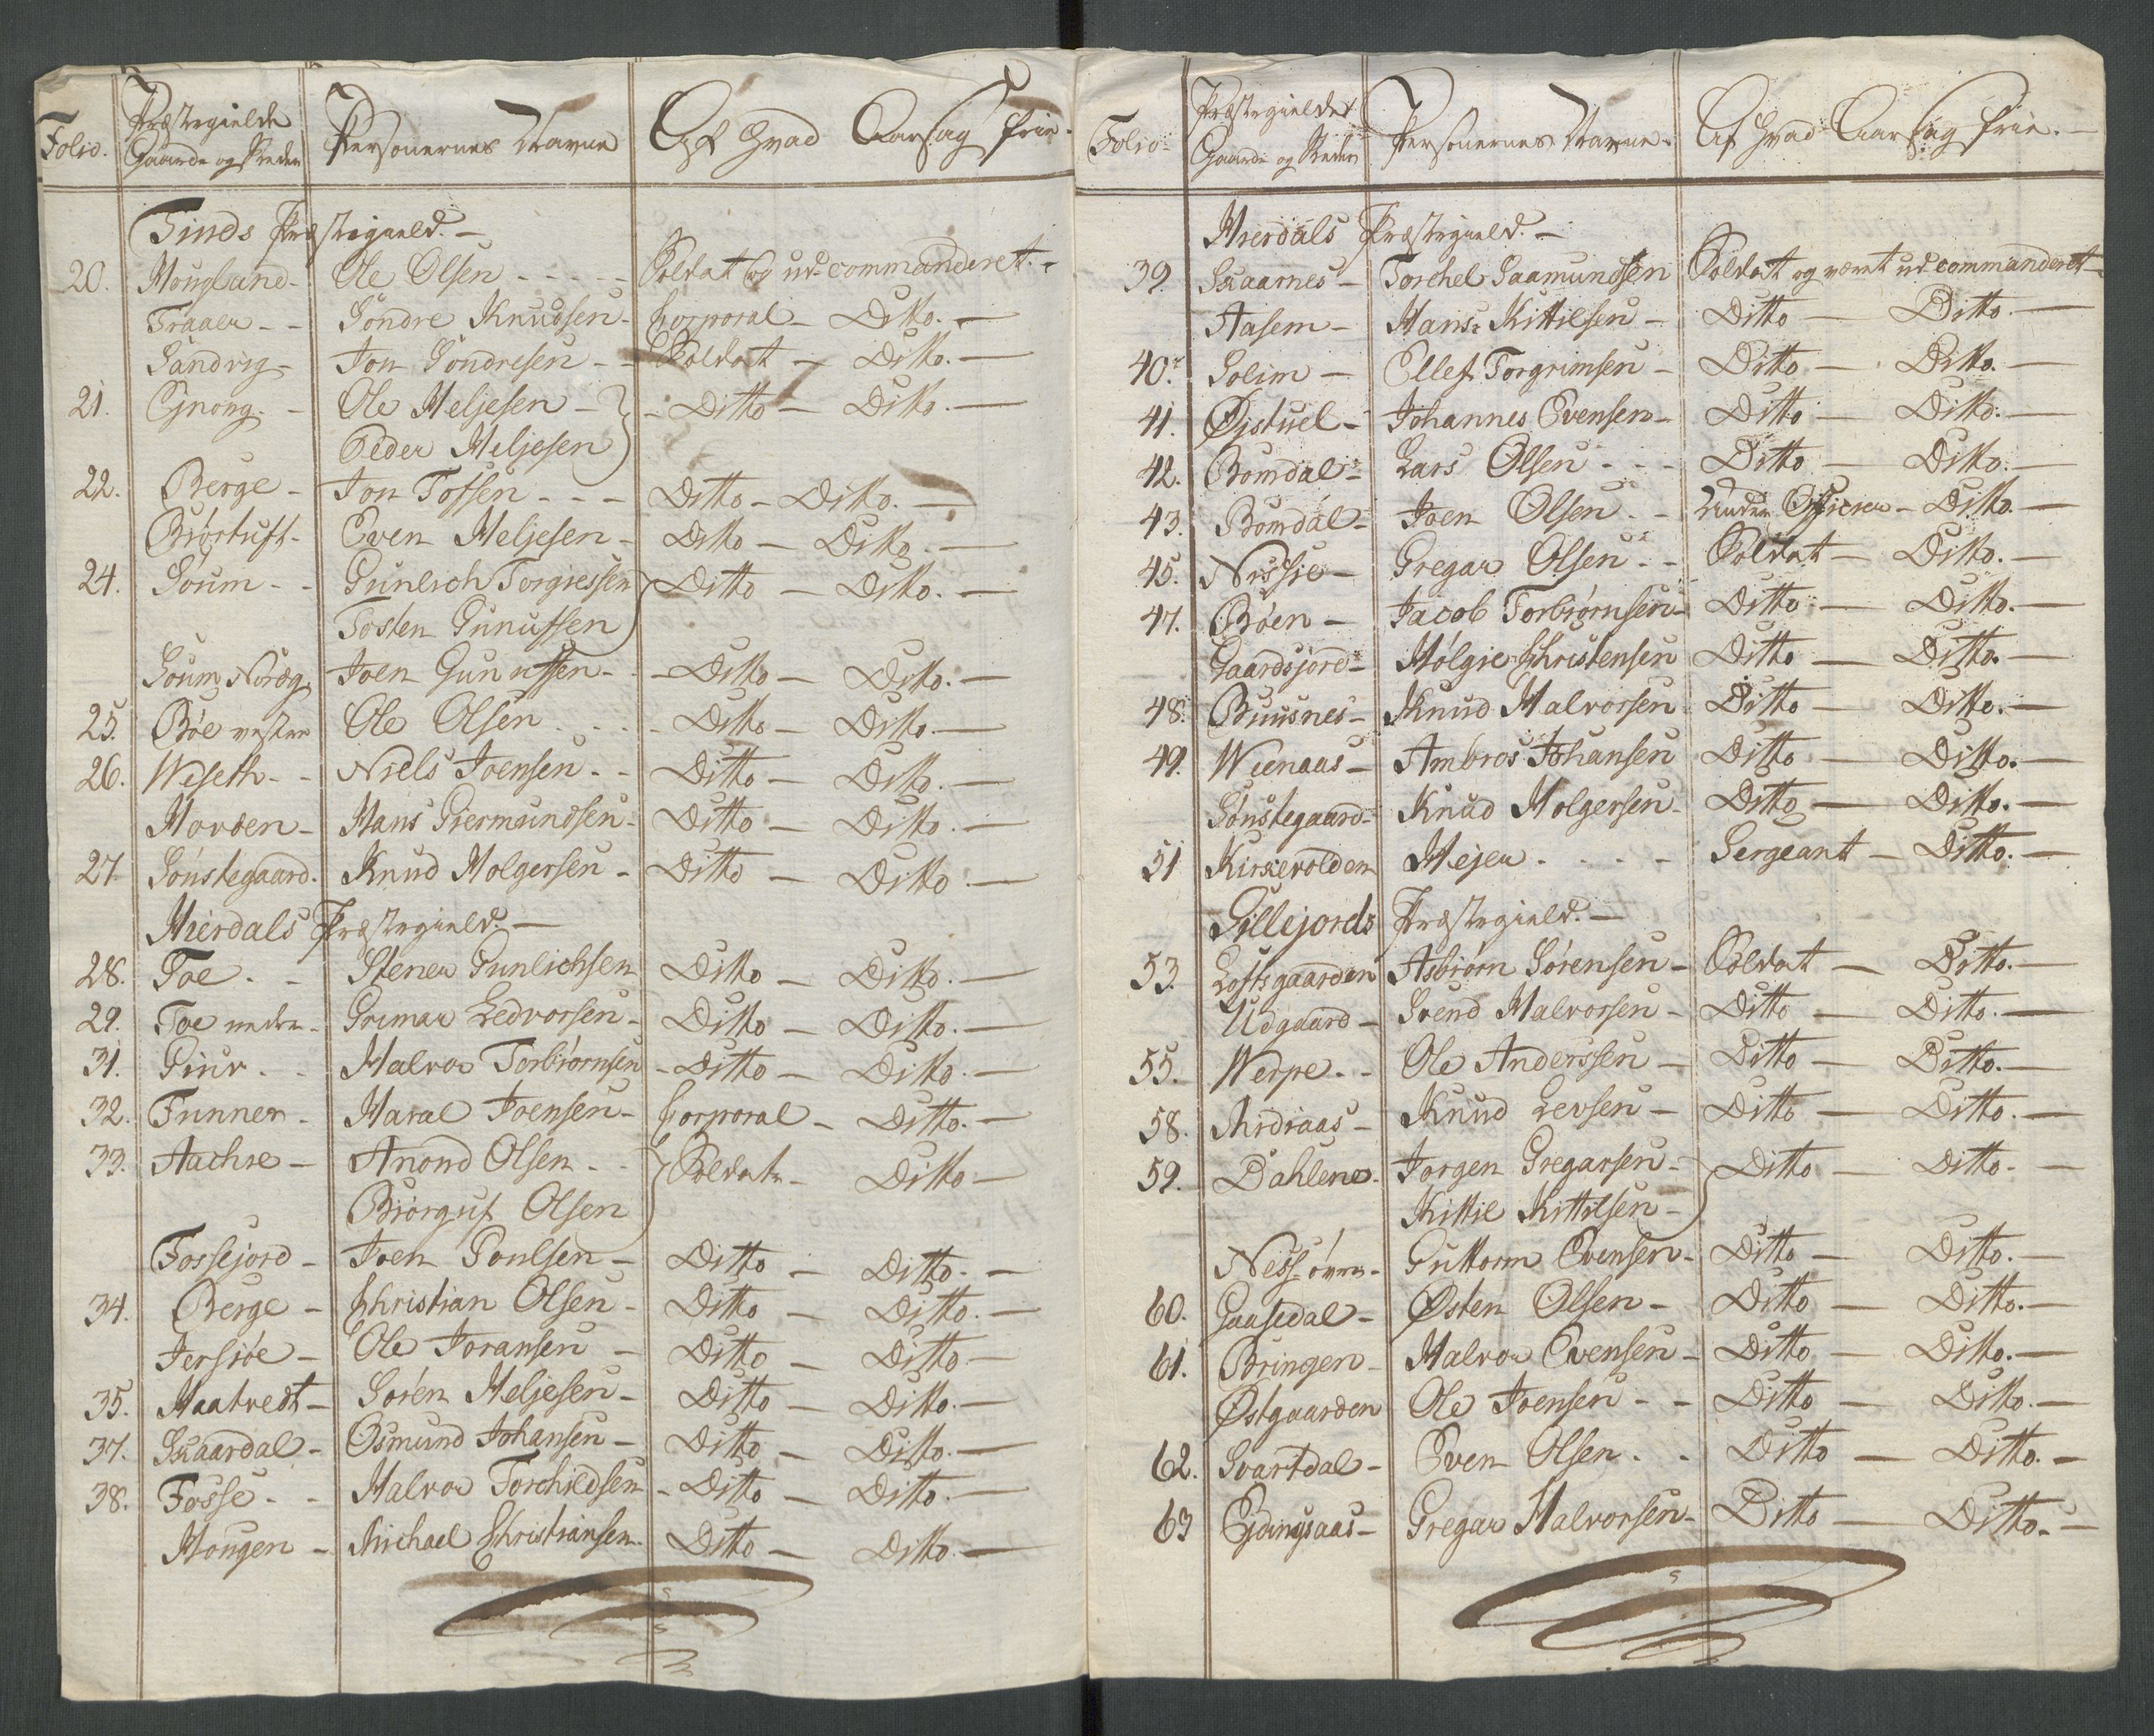 Folio. Præstegielde Gaarde og Steder Personernes Navne Af hvad Aarsag frie.
Tinds Præstegield. —
20. Hougland - Ole Olsen - - - - Soldat og ud commanderet. -
Traaen - - Söndre Knudsen - Corporal - Ditto. —
Sandvig - Jon Söndresen - - Soldat - Ditto. —
21. Gjnong. - Ole Heljesen - } - Ditto - Ditto. —
Peder Heljesen
22. Berge - Jon Tossen - - - Ditto - Ditto. —
Biørtuft - Even Heljesen - Ditto — Ditto. —
24. Soum - - Gunlech Torgiessen } Ditto — Ditto. —
Tosten Gunussen
Soum Nordg. Joen Gunussen - - Ditto — Ditto. —
25. Bøe vester Ole Olsen . . . - Ditto — Ditto. —
26. Weseth - - Niels Joensen - - Ditto — Ditto. —
Hovden - Hans Giermundsen - Ditto — Ditto. —
27. Sønstegaard. Knud Holgersen - Ditto — Ditto —
Hierdals Præstegield. —
28. Toe. - Stener Gunlichsen Ditto — Ditto. —
29. Toe nedre - Grimar Ledvorsen - Ditto — Ditto. —
31. Giuv. - Halvor Torbiørnsen - Ditto — Ditto. —
32. Funner - Haral Joensen - Corporal - Ditto. —
33. Aachre - Anond Olsen - - } Soldat - Ditto —
Biörguf Olsen
Fossejord - Joen Poulsen - Ditto — Ditto. —
34. Berge - Christian Olsen - Ditto — Ditto. —
Jersiøe - Ole Joransen - Ditto — Ditto —
35. Haatvedt - Sören Heljesen - Ditto — Ditto. —
37. Skaardal - Osmund Johansen - Ditto — Ditto. —
38. Fosse - - Halvor Torchildsen - Ditto — Ditto. —
Hougen - Michael Christiansen. Ditto — Ditto. —
Folio. Præstegieldet Gaarde og Steder Personernes Navne. Af hvad Aarsag frie. —
Hierdals Præstegield. —
39. Skaarnes - Torchel Saamundsen Soldat og været ud commanderet -
Aasem - Hans Kittilsen - Ditto — Ditto. —
40. Solim - Ellef Torgrimsen - Ditto — Ditto. —
41. Øjstuel - Johannes Evensen - Ditto — Ditto. —
42. Bomdal - Lars Olsen - - - Ditto — Ditto. —
43. Bomdal - Joen Olsen. - Under Officier - Ditto. —
45. Nissie - Gregar Olsen. - Soldat — Ditto. —
47. Bøen - Jacob Torbiørnsen - Ditto — Ditto. —
Gaardsjord - Hølgie Christensen Ditto — Ditto. —
48. Buusnes - Knud Halvorsen Ditto — Ditto. —
49. Weenaas - Ambros Johansen Ditto — Ditto. —
Sønstegaard - Knud Holgersen - Ditto — Ditto. —
51 Kirkevolden Hejer. - - - Sergeant — Ditto. —
Sillejords Præstegield. —
53. Loftsgaarden Asbiørn Sørensen - Soldat — Ditto. —
Udgaard - Svend Halvorsen - Ditto — Ditto. —
55. Werpe. - Ole Anderssen - Ditto — Ditto. —
58. Midiaas - Knud Levsen - Ditto — Ditto. —
59. Dahlene. Jorgen Gregarsen - } Ditto — Ditto. —
Kittil Kittilsen -
Ness øvre - Guttorm Evensen - Ditto — Ditto. —
60. Gaasedal - Østen Olsen - Ditto — Ditto. —
61. Bringen - Halvor Evensen - Ditto — Ditto. —
Østgaarden Ole Joensen - - Ditto — Ditto. —
62. Svartdal - Even Olsen. - Ditto — Ditto. —
63 Gregar Halvorsen - Ditto — Ditto. —